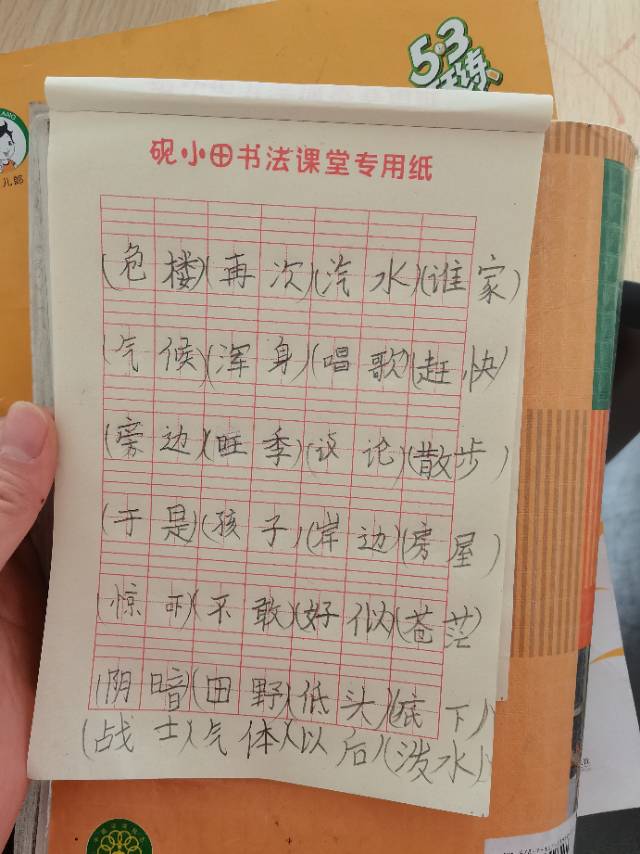 5·3
天天练
儿郎
砚小田书法课堂专用纸
(危楼)(再次)(汽水)(谁家)
(气候)(浑身)(唱歌)(赶快)
(旁边)(旺季)(议论)(散步)
(于是)(孩子)(岸边)(房屋)
(惊吓)(不敢)(好似)(苍茫)
(阴暗)(田野)(低头)(底下)
(战士)(气体)(以后)(泼水)